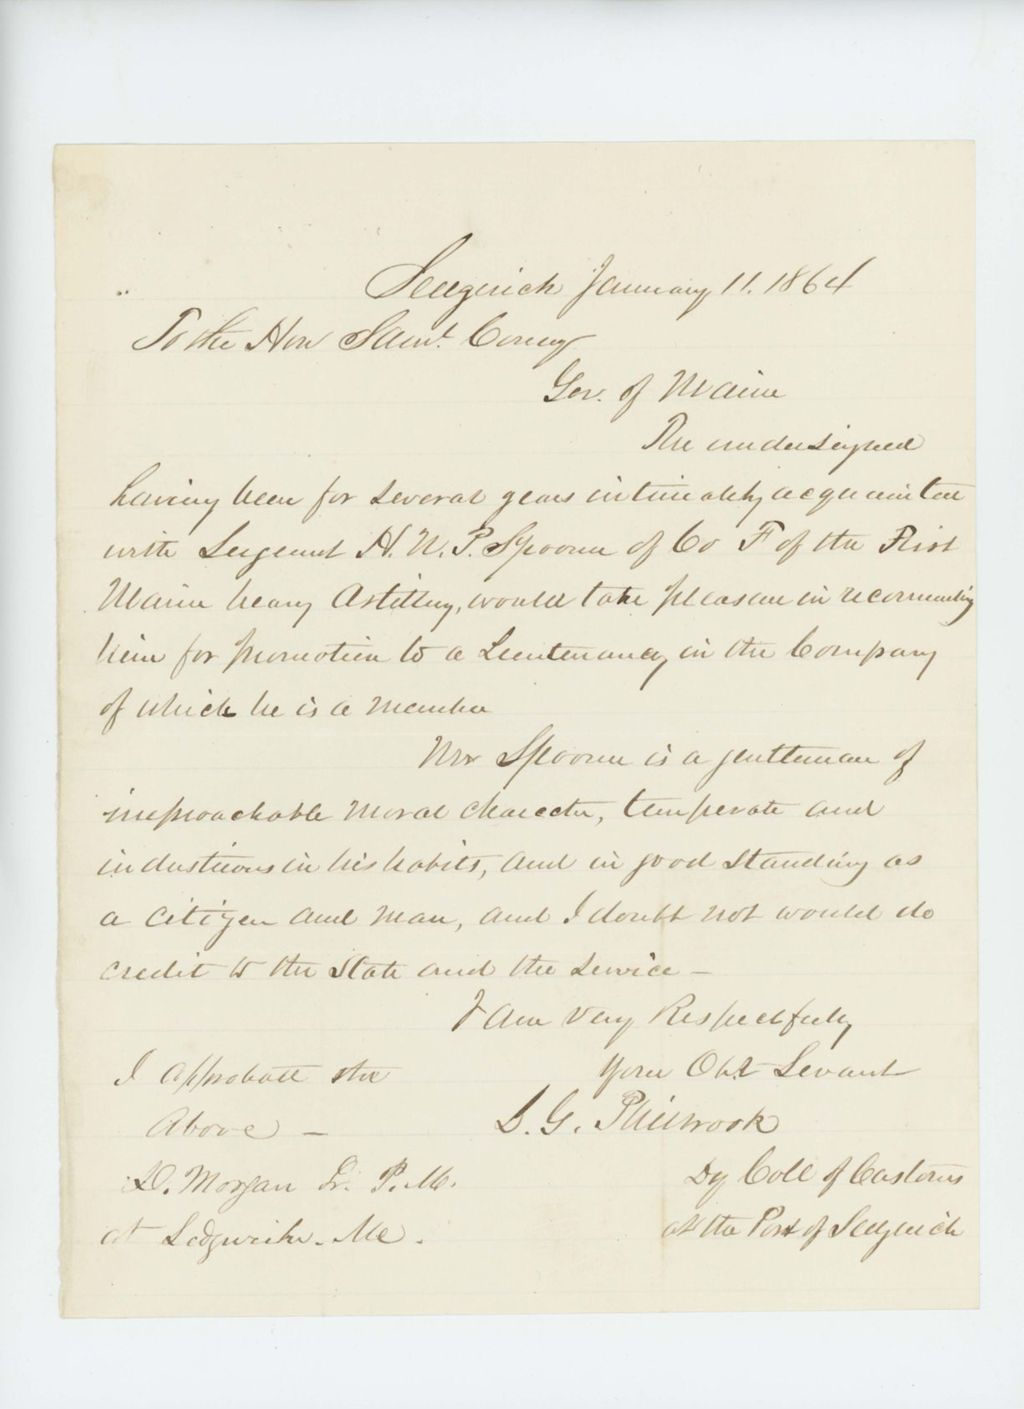 Sedgwick January 11. 1864
To the Hon Saml. Coney
Gov. of Maine
The undersigned
having been for several years intimately acquainted
with Sergeant H. N. P. Spooner of Co F of the First
Maine heavy Artillery, would take pleasure in recommending
him for promotion to a Lieutenancy in the Company
of which he is a member
Mr Spooner is a gentleman of
irreproachable moral character, temperate and
industrious in his habits, and in good standing as
a citizen and man, and I doubt not would do
credit to the State and the service —
I am very Respectfully
Your Obt Servant
S. G. Philbrook
Dy Coll of Customs
at the Port of Sedgwick
I approbate the
Above —
D. Morgan Jr. P. M.
at Sedgwick. Me.